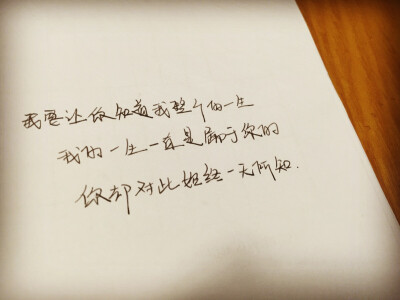 我要让你知道我整个的一生
我的一生一直是属于你的
你却对此始终一无所知.